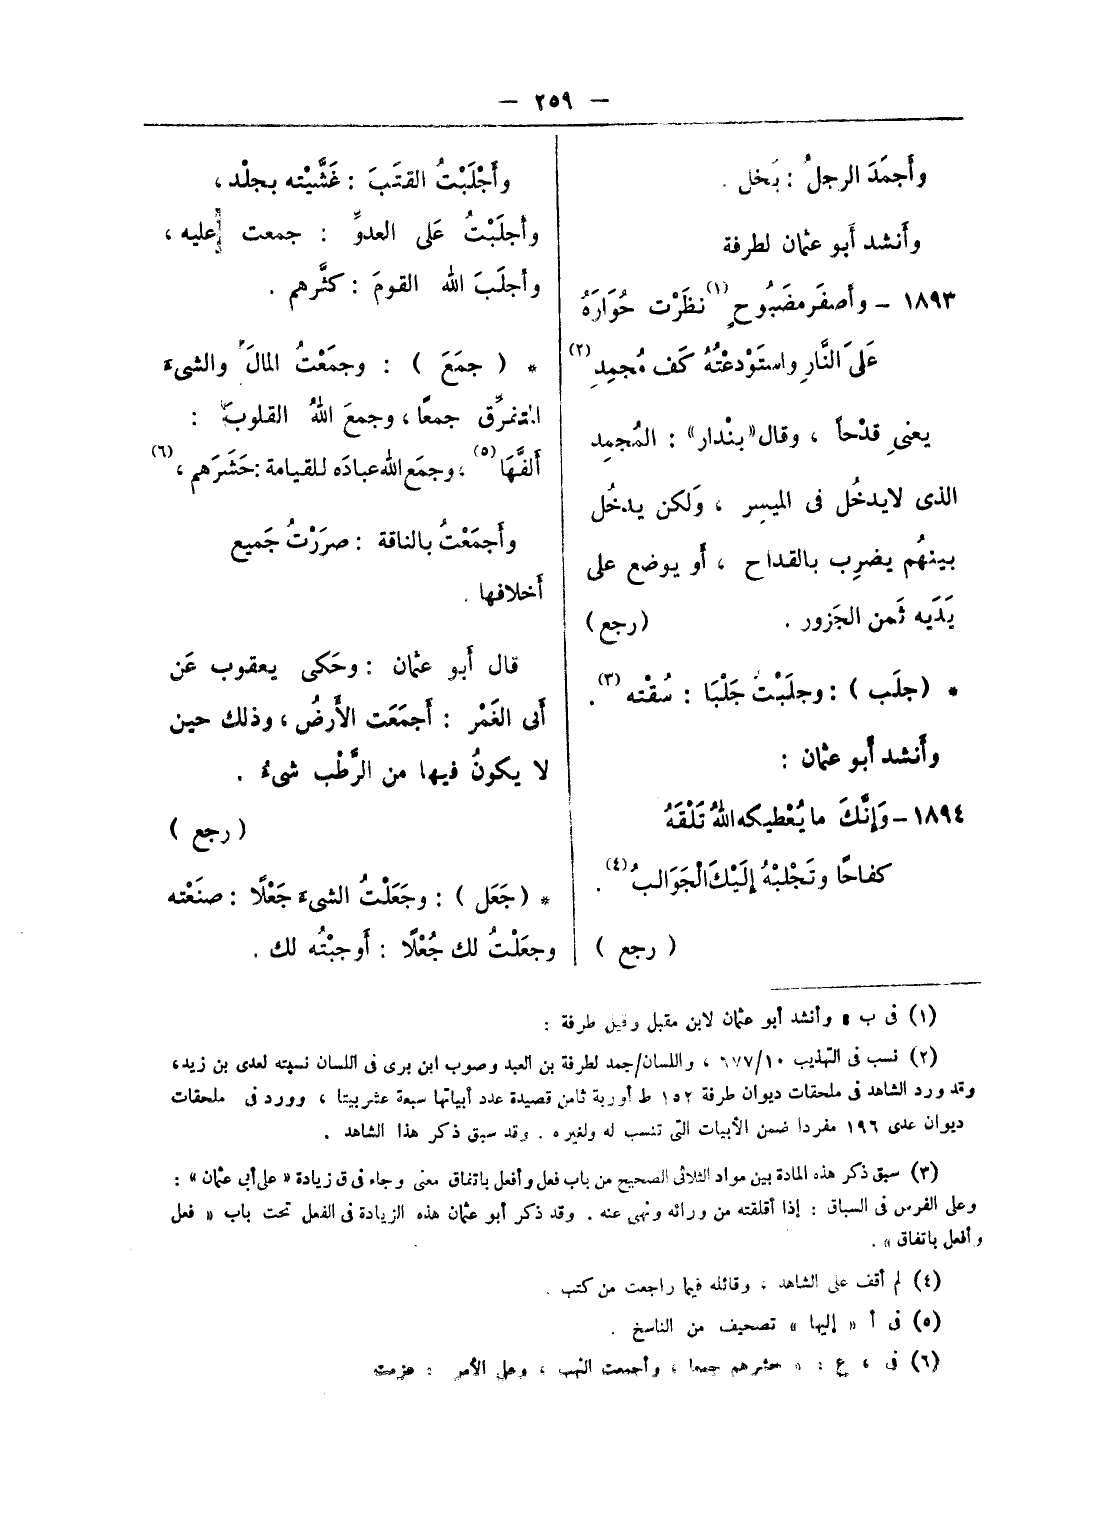 — ٢٥٩ —
وأَجمَدَ الرجلُ : بَخل .
وأَنشد أَبو عثمان لطرفة
١٨٩٣ – وأَصفَر مضَبُوحٍ (١) نظَرْت حُوَارَهُ
عَلىَ النَّارِ واستَوْدعْتُهُ كَف مُجمِدِ (٢)
يعنىِ قدْحاً ، وقال «بنْدار» : المُجمِد
الذى لايدخُل فى الميسِر ، وَلكن يدخُل
بينهُم يضرِب بالقداح ، أَو يوضع على
يَدَيه ثَمن الجَزور . (رجع)
* (جلَب) : وجلَبْتُ جَلْبَا : سُقْته (٣) .
وأَنشد أَبو عثمان :
١٨٩٤ – وَإِنَّكَ ما يُعْطيكه اللهُ تَلْقَهُ
كفاحًا وتَجْلبْهُ إِلَيْكَ الْجَوَالبُ (٤) .
( رجع )
وأَجْلَبْتُ القتَبَ : غَشَّيْته بجلْد ،
وأجلَبْتُ عَلى العدوِّ : جمعت عليه ،
وأجلَبَ الله القومَ : كثَّرهم .
* ( جمَعَ ) : وجمَعْتُ المالَ والشىءَ
المتفرِّق جمعًا ، وجمعَ اللهُ القلوبَ :
أَلفَّهَا (٥) ، وجمَع الله عبادَه للقيامة : حَشَرَهم ، (٦)
وأَجمَعْتُ بالناقة : صرَرْتُ جَميع
أَخلافها .
قال أَبو عثمان : وحَكى يعقوب عَن
أَبى الغَمْر : أَجمَعَت الأَرضُ ، وذلك حين
لا يكونُ فيها من الرَّطْب شىءُ .
( رجع )
* (جَعَل ) : وجَعَلْتُ الشىءَ جَعْلًا : صنَعْته
وجعَلْتُ لك جُعْلًا : أَوجبْتُه لك .
(١) فى ب « وأنشد أبو عثمان لابن مقبل وقيل طرفة :
(٢) نسب فى التهذيب ١٠/٦٧٧ ، واللسان/جمد لطرفة بن العبد وصوب ابن برى فى اللسان نسبته لعدى بن زيد ،
وقد ورد الشاهد فى ملحقات ديوان طرفة ١٥٢ ط أوربة ثامن قصيدة عدد أبياتها سبعة عشر بيتا ، وورد فى ملحقات
ديوان عدى ١٩٦ مفردا ضمن الأبيات التى تنسب له ولغيره . وقد سبق ذكر هذا الشاهد .
(٣) سبق ذكر هذه المادة بين مواد الثلاثى الصحيح من باب فعل وأفعل باتفاق معنى وجاء فى ق زيادة « على أبى عثمان » :
وعلى الفرس فى السباق : إذا أقلقته من ورائه ونهى عنه . وقد ذكر أبو عثمان هذه الزيادة فى الفعل تحت باب « فعل
وأفعل باتفاق » .
(٤) لم أقف على الشاهد ، وقائله فيما راجعت من كتب .
(٥) فى أ « إليها » تصحيف من الناسخ .
(٦) فى ، ع : « حشرهم جمعا ، وأجمعت النهب ، وعلى الأمر : عزمت